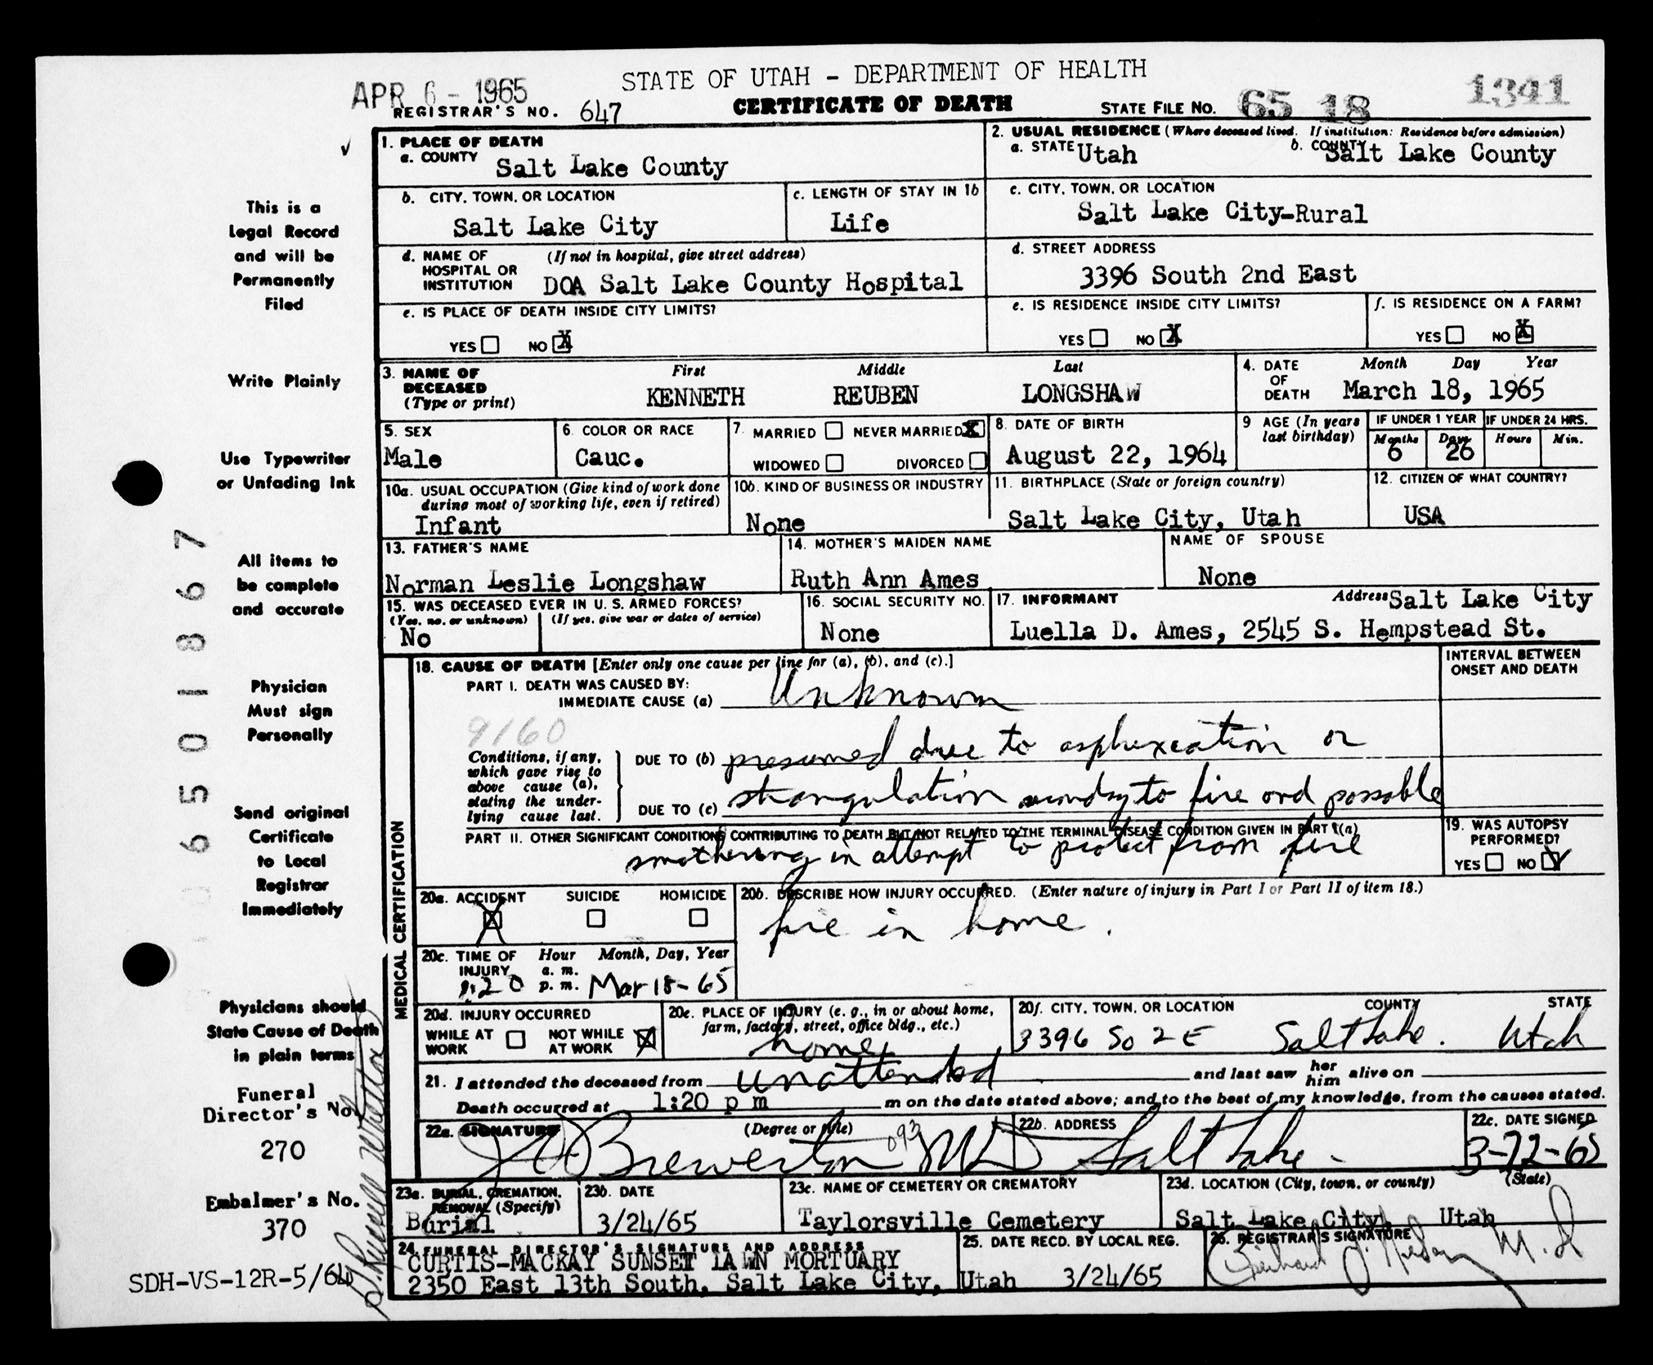 APR 6 - 1965
STATE OF UTAH - DEPARTMENT OF HEALTH
1341
REGISTRAR'S NO. 647
CERTIFICATE OF DEATH
STATE FILE NO. 65 18
1. PLACE OF DEATH
a. COUNTY Salt Lake County
2. USUAL RESIDENCE (Where deceased lived. If institution: Residence before admission)
a. STATE Utah
b. COUNTY Salt Lake County
b. CITY, TOWN, OR LOCATION
Salt Lake City
c. LENGTH OF STAY IN 1b
Life
c. CITY, TOWN, OR LOCATION
Salt Lake City-Rural
d. NAME OF HOSPITAL OR INSTITUTION (If not in hospital, give street address)
DOA Salt Lake County Hospital
d. STREET ADDRESS
3396 South 2nd East
e. IS PLACE OF DEATH INSIDE CITY LIMITS?
YES NO X
e. IS RESIDENCE INSIDE CITY LIMITS?
YES NO X
f. IS RESIDENCE ON A FARM?
YES NO X
3. NAME OF DECEASED (Type or print)
First Middle Last
KENNETH REUBEN LONGSHAW
4. DATE OF DEATH
Month Day Year
March 18, 1965
5. SEX
Male
6. COLOR OR RACE
Cauc.
7. MARRIED NEVER MARRIED X
WIDOWED DIVORCED
8. DATE OF BIRTH
August 22, 1964
9 AGE (In years last birthday)
IF UNDER 1 YEAR
Months Days
6 26
IF UNDER 24 HRS.
Hours Min.
10a. USUAL OCCUPATION (Give kind of work done during most of working life, even if retired)
Infant
10b. KIND OF BUSINESS OR INDUSTRY
None
11. BIRTHPLACE (State or foreign country)
Salt Lake City, Utah
12. CITIZEN OF WHAT COUNTRY?
USA
13. FATHER'S NAME
Norman Leslie Longshaw
14. MOTHER'S MAIDEN NAME
Ruth Ann Ames
NAME OF SPOUSE
None
15. WAS DECEASED EVER IN U. S. ARMED FORCES?
(Yes, no, or unknown) (If yes, give war or dates of service)
No
16. SOCIAL SECURITY NO.
None
17. INFORMANT
Address Salt Lake City
Luella D. Ames, 2545 S. Hempstead St.
MEDICAL CERTIFICATION
18. CAUSE OF DEATH [Enter only one cause per line for (a), (b), and (c).]
INTERVAL BETWEEN ONSET AND DEATH
PART I. DEATH WAS CAUSED BY:
IMMEDIATE CAUSE (a) Unknown
9160
Conditions, if any, which gave rise to above cause (a), stating the underlying cause last.
DUE TO (b) presumed due to asphyxication or
DUE TO (c) strangulation secondary to fire and possable
PART II. OTHER SIGNIFICANT CONDITIONS CONTRIBUTING TO DEATH BUT NOT RELATED TO THE TERMINAL DISEASE CONDITION GIVEN IN PART I(a)
smothering in attempt to protect from fire
19. WAS AUTOPSY PERFORMED?
YES NO
20a. ACCIDENT SUICIDE HOMICIDE
X
20b. DESCRIBE HOW INJURY OCCURRED. (Enter nature of injury in Part I or Part II of item 18.)
fire in home.
20c. TIME OF INJURY
Hour Month, Day, Year
a. m.
1:20 p. m. Mar 18-65
20d. INJURY OCCURRED
WHILE AT WORK NOT WHILE AT WORK X
20e. PLACE OF INJURY (e. g., in or about home, farm, factory, street, office bldg., etc.)
home
20f. CITY, TOWN, OR LOCATION COUNTY STATE
3396 So 2 E Salt Lake. Utah
21. I attended the deceased from unattended and last saw her him alive on
Death occurred at 1:20 p m m on the date stated above; and to the best of my knowledge, from the causes stated.
22a. SIGNATURE (Degree or title)
Brewerton MD
093
22b. ADDRESS
Salt Lake -
22c. DATE SIGNED
3-22-65
23a. BURIAL, CREMATION, REMOVAL (Specify)
Burial
23b. DATE
3/24/65
23c. NAME OF CEMETERY OR CREMATORY
Taylorsville Cemetery
23d. LOCATION (City, town, or county) (State)
Salt Lake City, Utah
24. FUNERAL DIRECTOR'S SIGNATURE AND ADDRESS
CURTIS-MACKAY SUNSET LAWN MORTUARY
2350 East 13th South, Salt Lake City, Utah
25. DATE RECD. BY LOCAL REG.
3/24/65
26. REGISTRAR'S SIGNATURE
M.D
This is a
Legal Record
and will be
Permanently
Filed
Write Plainly
Use Typewriter
or Unfading Ink
All items to
be complete
and accurate
Physician
Must sign
Personally
Send original
Certificate
to Local
Registrar
Immediately
Physicians should
State Cause of Death
in plain terms
Funeral
Director's No.
270
Embalmer's No.
370
SDH-VS-12R-5/64
6501867